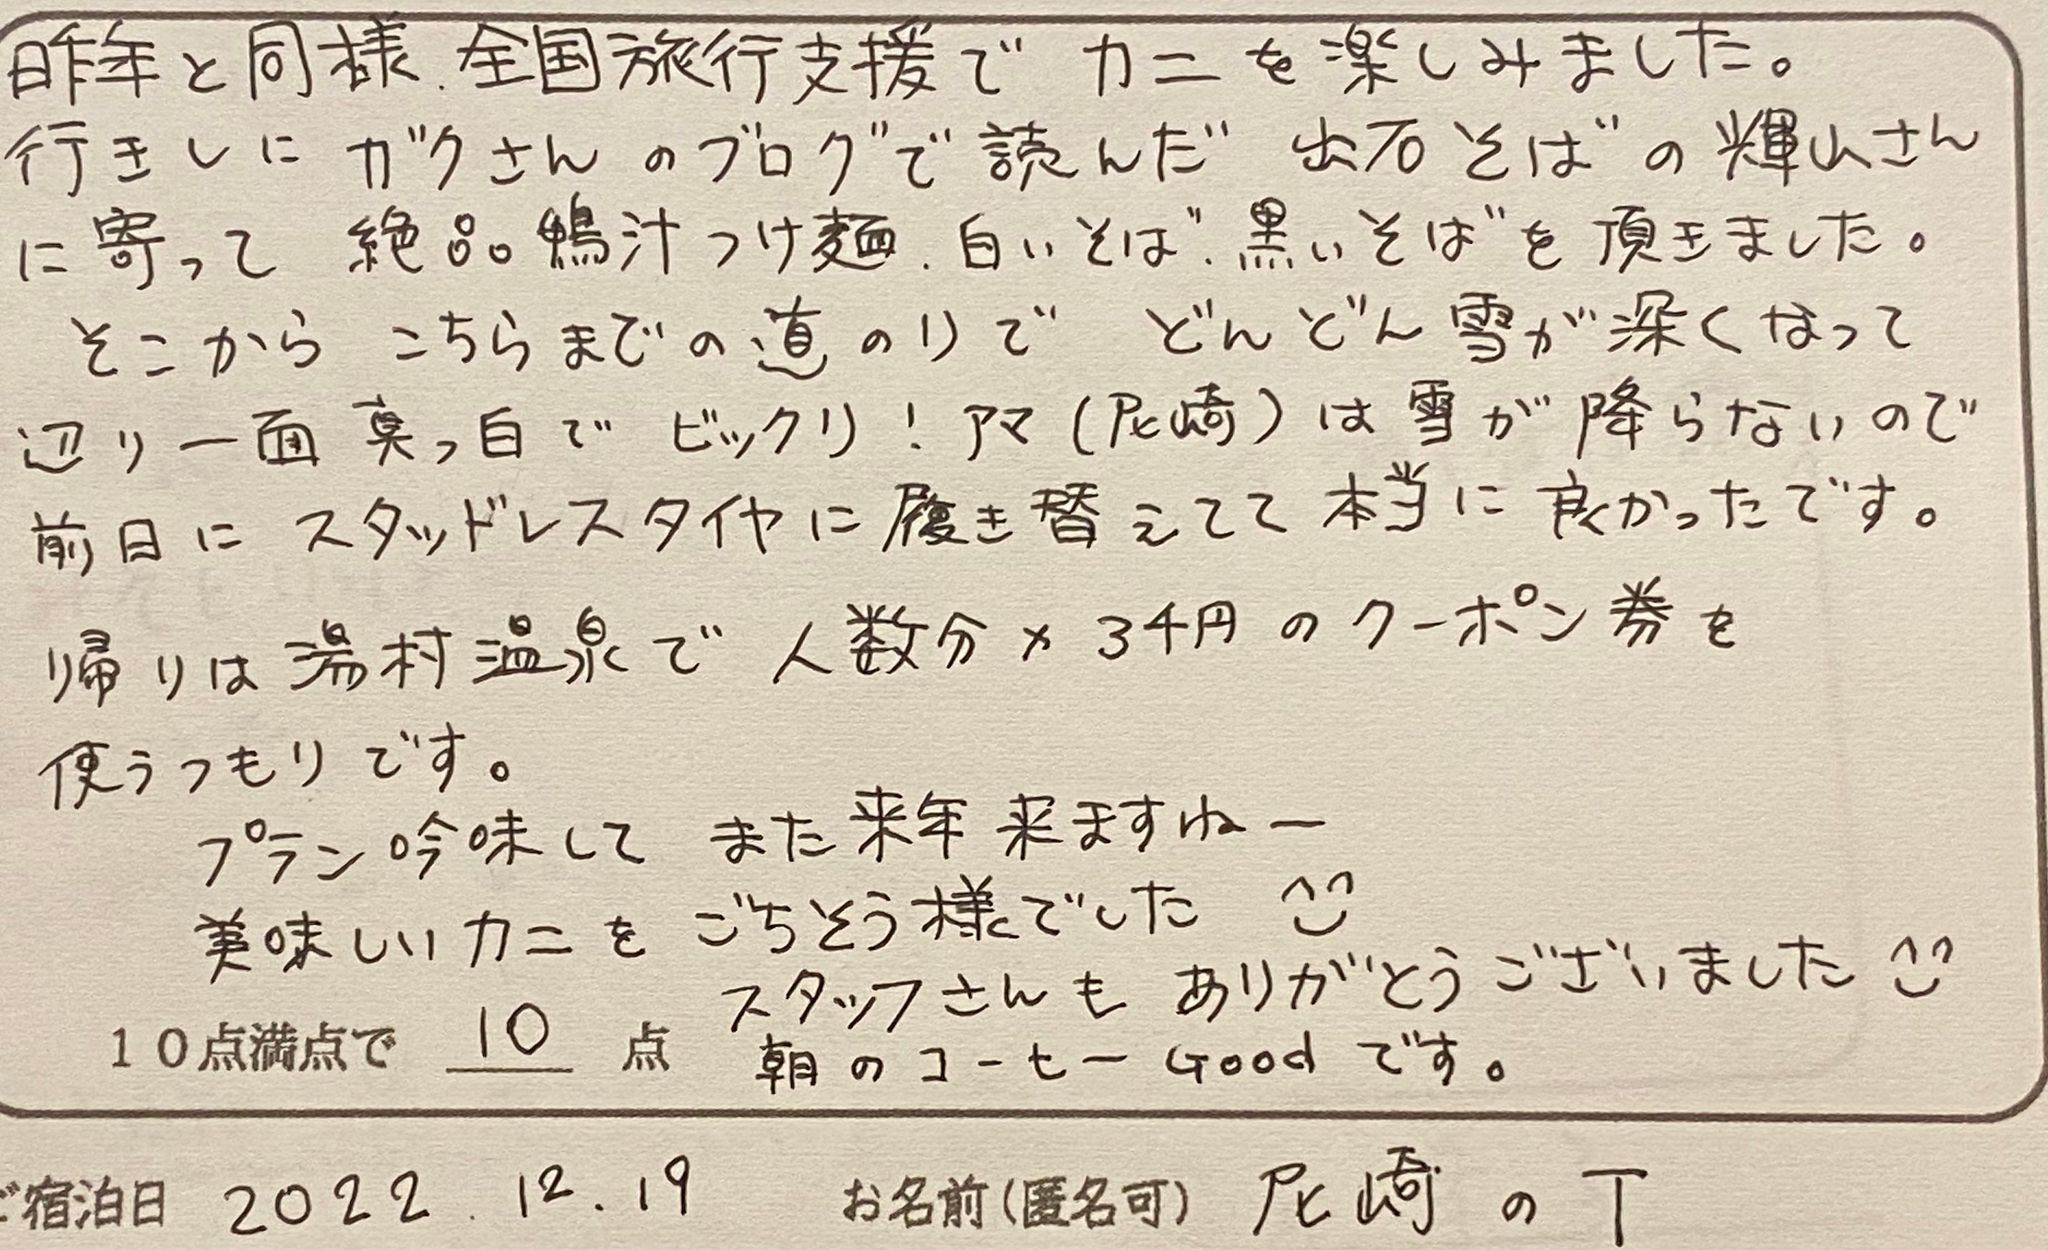 昨年と同様、全国旅行支援で カニを楽しみました。
行きしに ガクさんのブログで読んだ 出石そばの輝山さん
に寄って 絶品鴨汁つけ麺、白いそば、黒いそばを頂きました。
そこから こちらまでの道のりで どんどん雪が深くなって
辺り一面真っ白で ビックリ！アマ(尼崎)は雪が降らないので
前日に スタッドレスタイヤに履き替えてて本当に良かったです。
帰りは湯村温泉で人数分×3千円のクーポン券を
使うつもりです。
プラン吟味して また来年来ますねー
美味しいカニを ごちそう様でした ^^
スタッフさんも ありがとうございました ^^
10点満点で 10 点
朝のコーヒーGoodです。
ご宿泊日 2022.12.19 お名前(匿名可) 尼崎のT